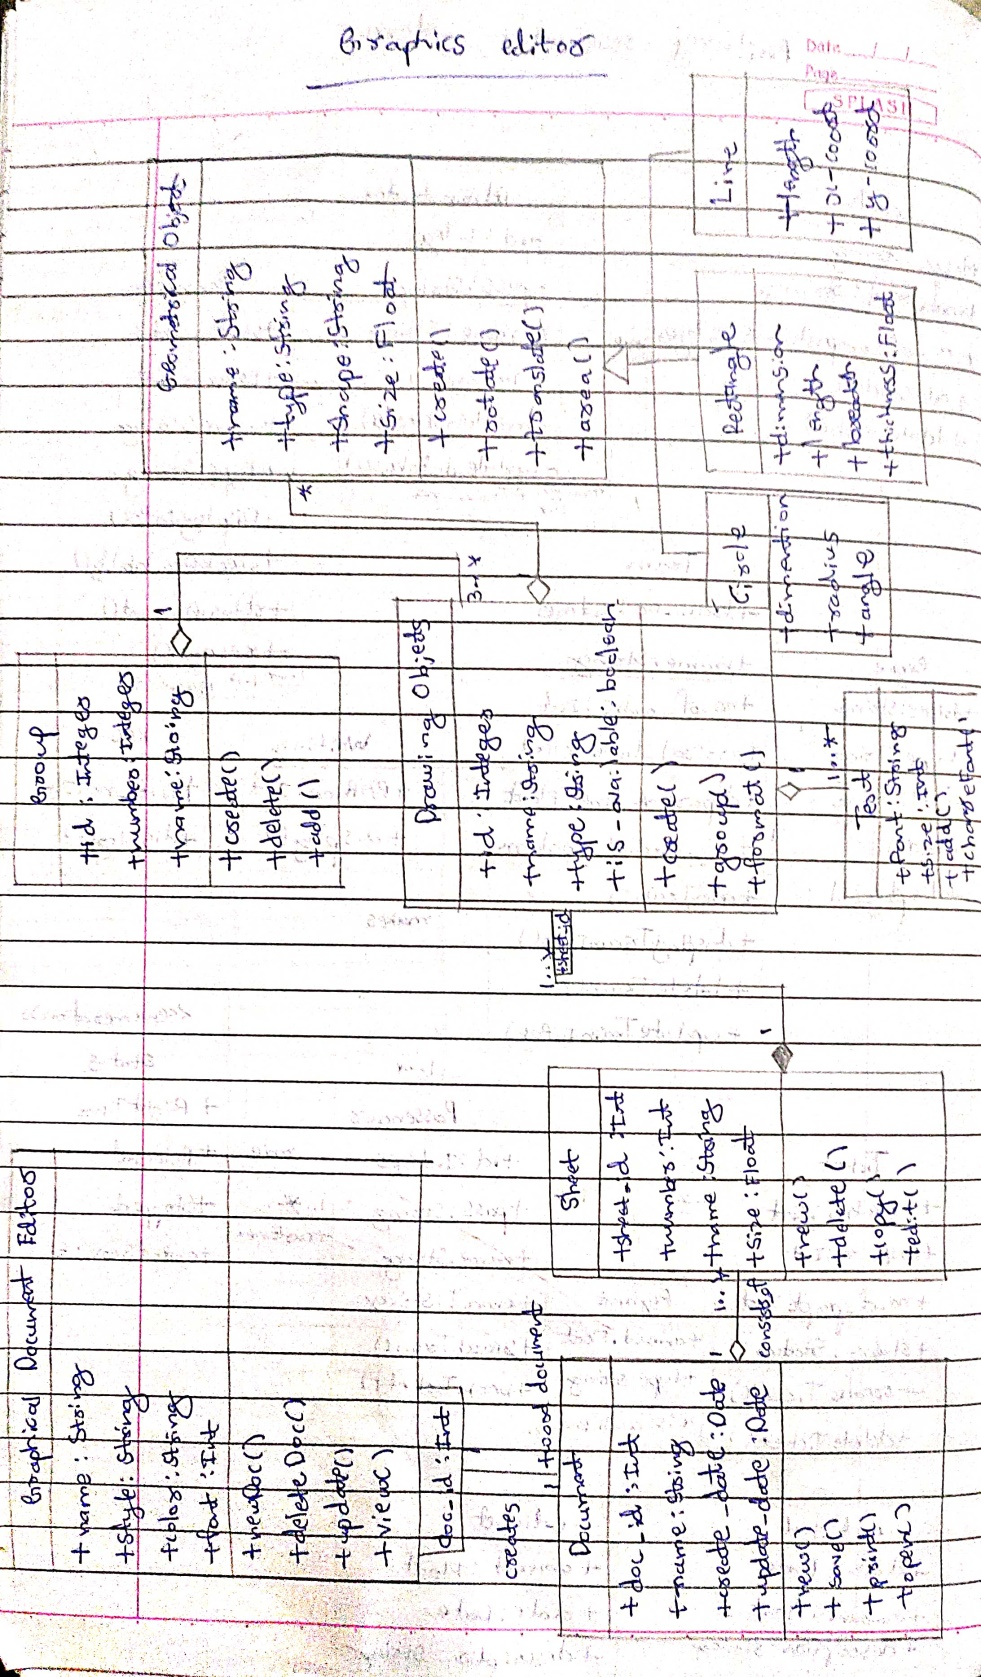 Graphics editor
Date
Page
SPLASH
Graphical Document Editor
+name : String
+style : String
+color : String
+font : Int
+newDoc()
+deleteDoc()
+update()
+view()
doc_id : Int
creates
1
1
Document
+doc_id : Int
+name : String
+create_date : Date
+update_date : Date
+new()
+save()
+print()
+open()
1
consists of
1..*
Sheet
+sheet_id : Int
+number : Int
+name : String
+size : Float
+new()
+delete()
+copy()
+edit()
1
1..*
+sheet_id
Group
+id : Integer
+number : Integer
+name : String
+create()
+delete()
+add()
1
3..*
Drawing Objects
+id : Integer
+name : String
+type : String
+is_available : boolean
+create()
+group()
+format()
1
1..*
Text
+font : String
+size : Int
+add()
*
Geometrical Object
+name : String
+type : String
+shape : String
+size : Float
+create()
+rotate()
+translate()
+area()
Circle
+dimention
+radius
+angle
Rectangle
+dimension
+length
+breadth
+thickness : Float
Line
+length
+x-coord
+y-coord